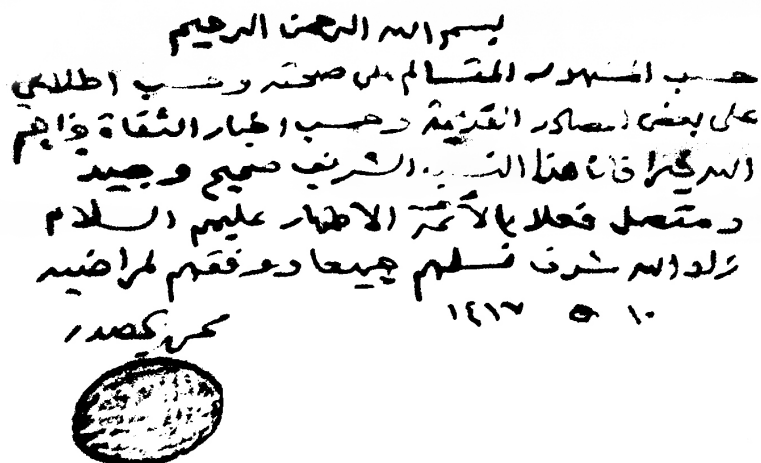 بسم الله الرحمن الرحيم
حسب الشهود المقسا لم على صحته وحسب اطلاعي
على بعض المصادر القديمة وحسب اخبار الثقاة جزاهم
الله خيرا فان هذا النسب الشريف صحيح وجيد
ومتصل فعلا بالأئمة الاطهار عليهم السلام
زاد الله شرف نسلهم جميعا ووفقهم لمراضيه
١٠ ٥ ١٤١٧